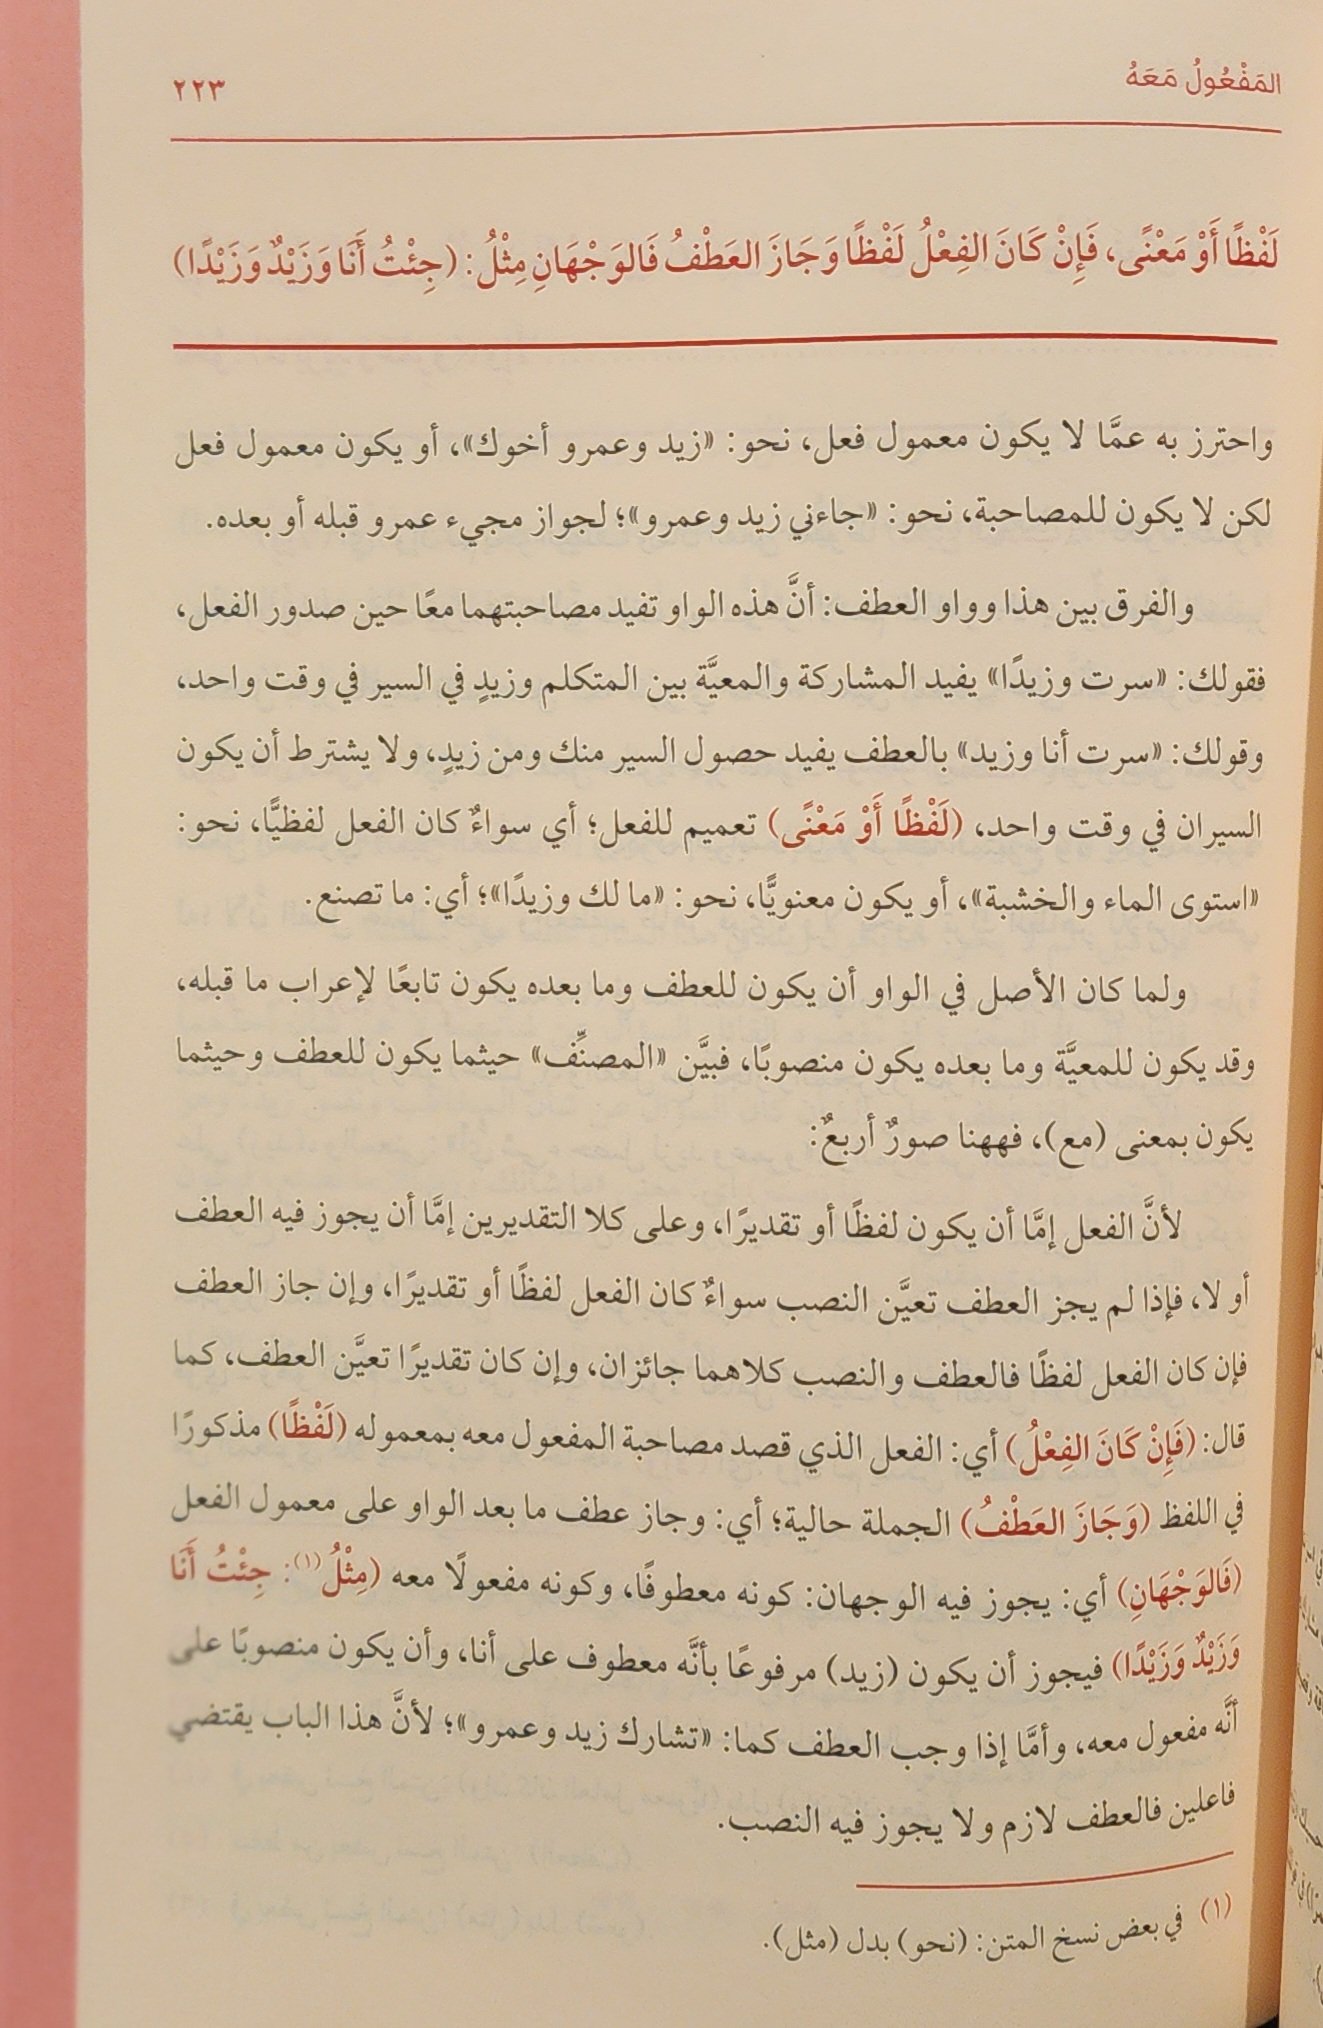 المَفْعُولُ مَعَهُ
٢٢٣
لَفْظًا أَوْ مَعْنًى، فَإِنْ كَانَ الفِعْلُ لَفْظًا وَجَازَ العَطْفُ فَالوَجْهَانِ مِثْلُ: (جِئْتُ أَنَا وَزَيْدٌ وَزَيْدًا)
واحترز به عمَّا لا يكون معمول فعل، نحو: «زيد وعمرو أخوك»، أو يكون معمول فعل
لكن لا يكون للمصاحبة، نحو: «جاءني زيد وعمرو»؛ لجواز مجيء عمرو قبله أو بعده.
والفرق بين هذا وواو العطف: أنَّ هذه الواو تفيد مصاحبتهما معًا حين صدور الفعل،
فقولك: «سرت وزيدًا» يفيد المشاركة والمعيَّة بين المتكلم وزيدٍ في السير في وقت واحد،
وقولك: «سرت أنا وزيد» بالعطف يفيد حصول السير منك ومن زيدٍ، ولا يشترط أن يكون
السيران في وقت واحد، (لَفْظًا أَوْ مَعْنًى) تعميم للفعل؛ أي سواءٌ كان الفعل لفظيًّا، نحو:
«استوى الماء والخشبة»، أو يكون معنويًّا، نحو: «ما لك وزيدًا»؛ أي: ما تصنع.
ولما كان الأصل في الواو أن يكون للعطف وما بعده يكون تابعًا لإعراب ما قبله،
وقد يكون للمعيَّة وما بعده يكون منصوبًا، فبيَّن «المصنِّف» حيثما يكون للعطف وحيثما
يكون بمعنى (مع)، فههنا صورٌ أربعٌ:
لأنَّ الفعل إمَّا أن يكون لفظًا أو تقديرًا، وعلى كلا التقديرين إمَّا أن يجوز فيه العطف
أو لا، فإذا لم يجز العطف تعيَّن النصب سواءٌ كان الفعل لفظًا أو تقديرًا، وإن جاز العطف
فإن كان الفعل لفظًا فالعطف والنصب كلاهما جائزان، وإن كان تقديرًا تعيَّن العطف، كما
قال: (فَإِنْ كَانَ الفِعْلُ) أي: الفعل الذي قصد مصاحبة المفعول معه بمعموله (لَفْظًا) مذكورًا
في اللفظ (وَجَازَ العَطْفُ) الجملة حالية؛ أي: وجاز عطف ما بعد الواو على معمول الفعل
(فَالوَجْهَانِ) أي: يجوز فيه الوجهان: كونه معطوفًا، وكونه مفعولًا معه (مِثْلُ(١): جِئْتُ أَنَا
وَزَيْدٌ وَزَيْدًا) فيجوز أن يكون (زيد) مرفوعًا بأنَّه معطوف على أنا، وأن يكون منصوبًا على
أنَّه مفعول معه، وأمَّا إذا وجب العطف كما: «تشارك زيد وعمرو»؛ لأنَّ هذا الباب يقتضي
فاعلين فالعطف لازم ولا يجوز فيه النصب.
(١) في بعض نسخ المتن: (نحو) بدل (مثل).